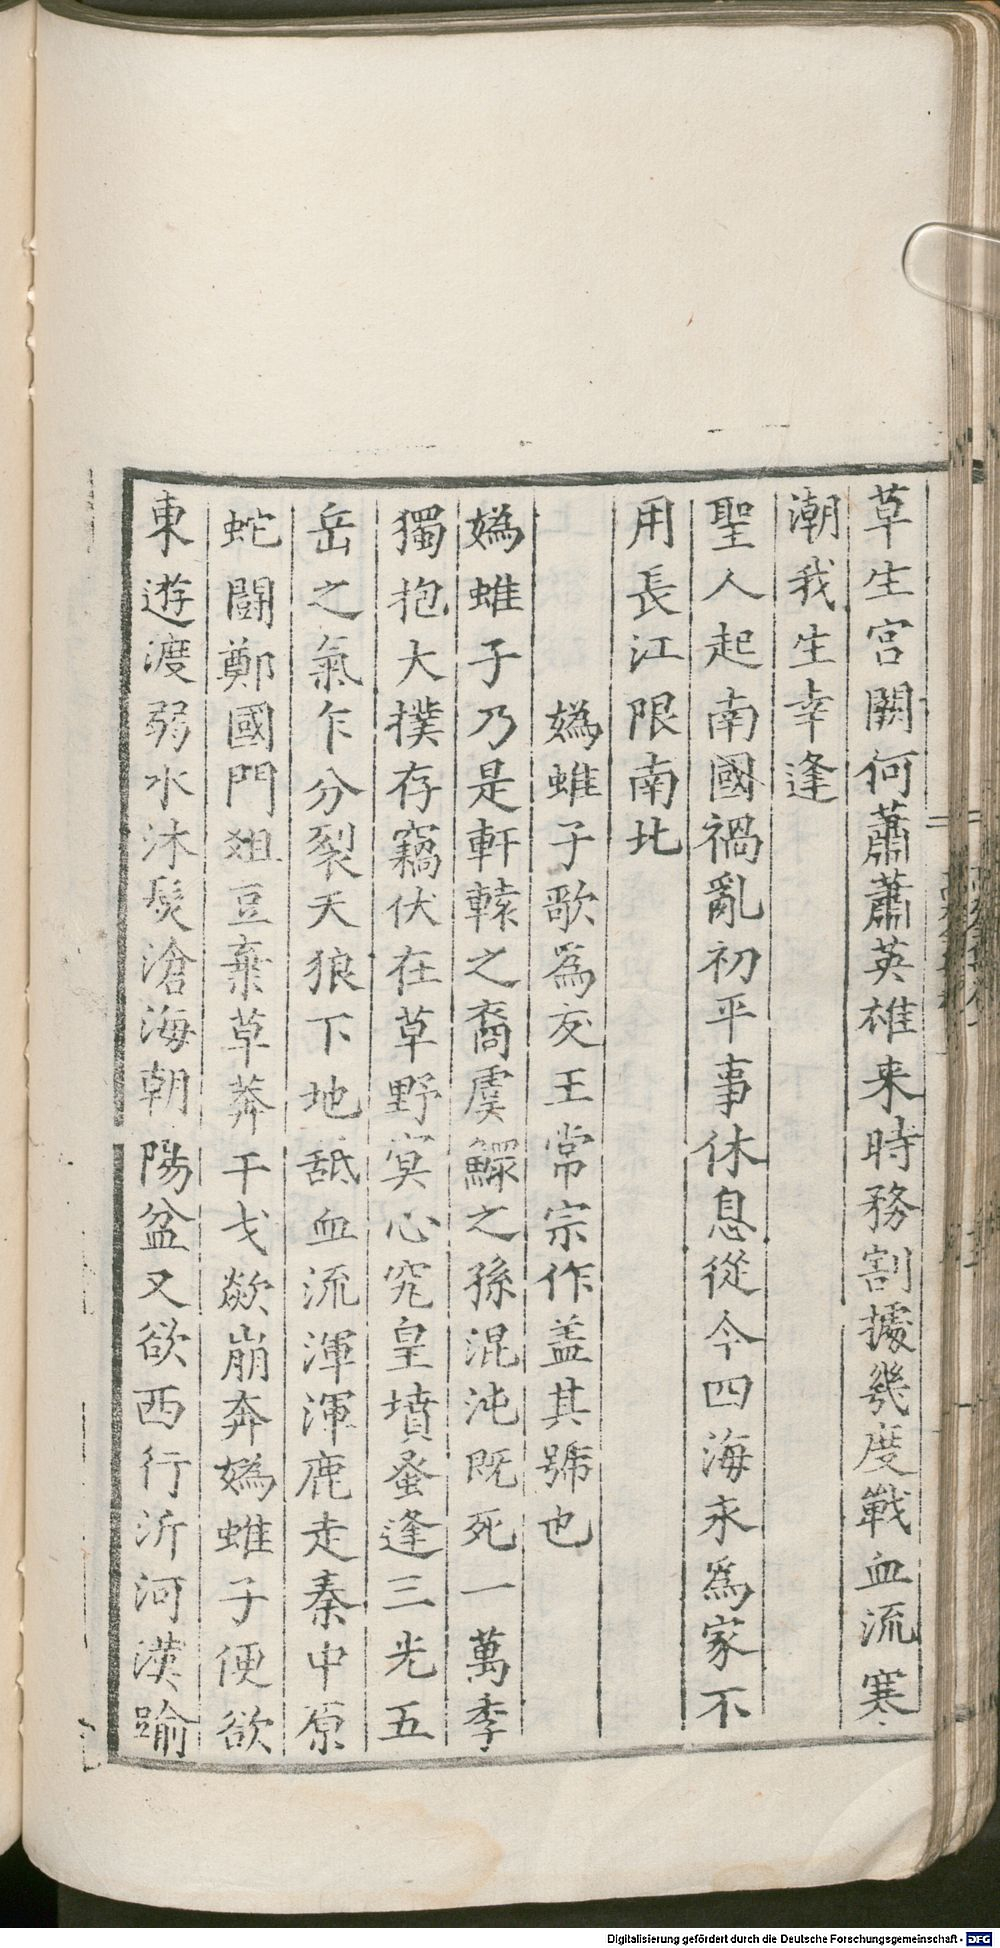 草生宮闕何蕭蕭英雄来時務割據幾度戰血流寒
潮我生幸逢
聖人起南國禍亂初平事休息從今四海永為家不
用長江限南北
媯蜼子歌為友王常宗作盖其號也
媯蜼子乃是軒轅之裔虞鰥之孫混沌既死一萬季
獨抱大樸存竊伏在草野冥心究皇墳蚤逢三光五
岳之氣乍分裂天狼下地舐血流渾渾鹿走秦中原
蛇鬪鄭國門俎豆棄草莽干戈歘崩奔媯蜼子便欲
東遊渡弱水沐髮滄海朝陽盆又欲西行沂河漢踰
Digitalisierung gefördert durch die Deutsche Forschungsgemeinschaft - DFG